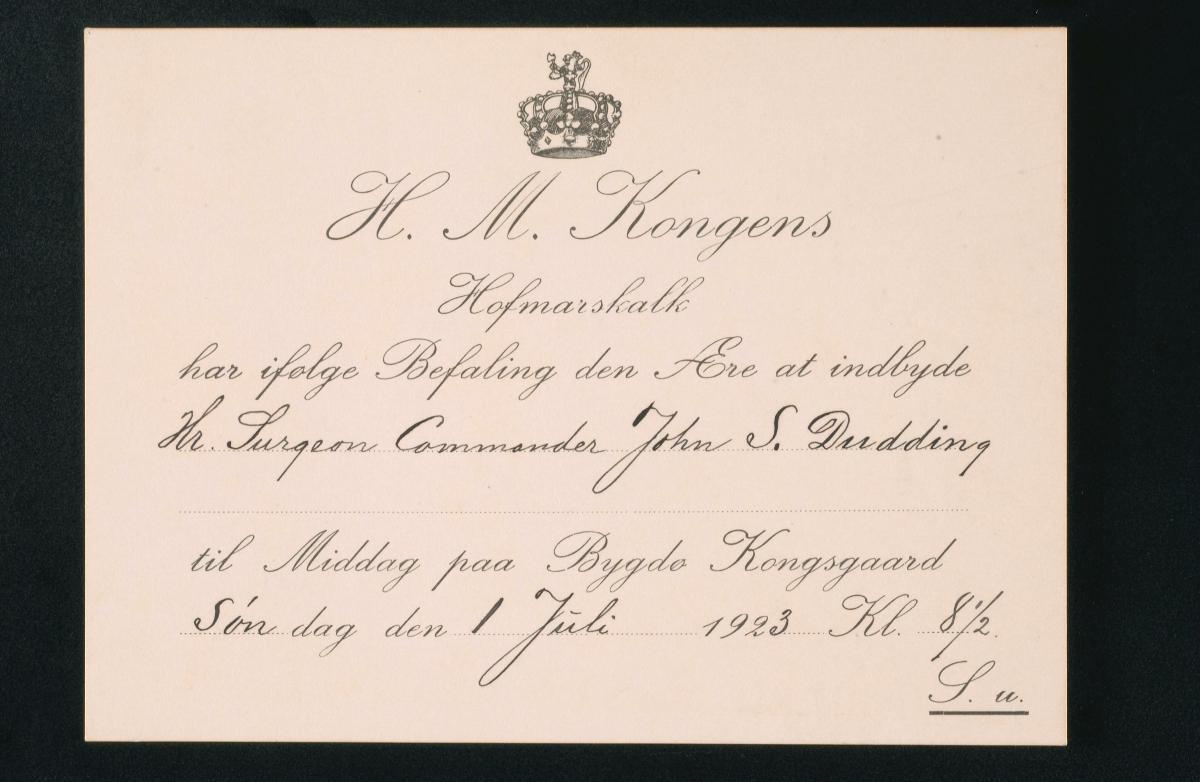 H. M. Kongens
Hofmarskalk
har ifølge Befaling den Ære at indbyde
Hr. Surgeon Commander John S. Dudding
til Middag paa Bygdø Kongsgaard
Søndag den 1 Juli 1923 Kl. 8 1/2.
S. u.